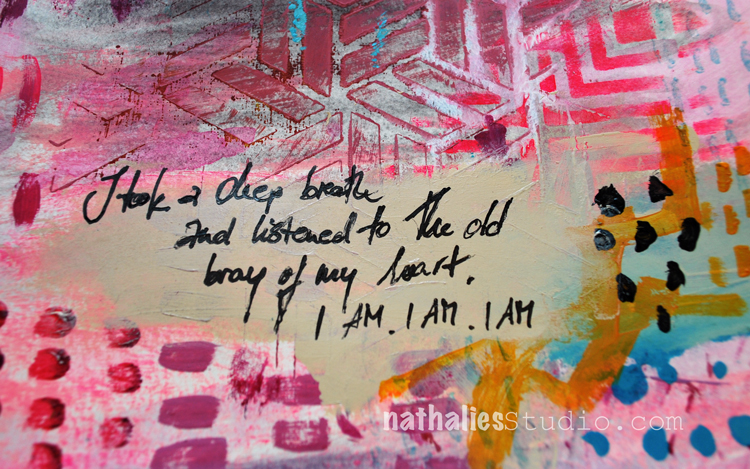 I took a deep breath
and listened to the old
bray of my heart.
I AM. I AM. I AM
nathaliesstudio.com